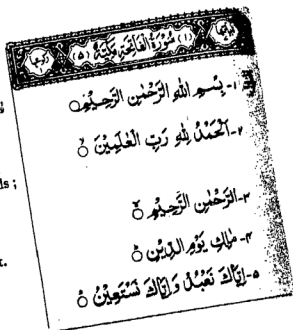 (١) سُوْرَةُ الْفَاتِحَةِ مَكِّيَّةٌ (٥)
١-بِسْمِ اللهِ الرَّحْمٰنِ الرَّحِيْمِ○
٢-اَلْحَمْدُ لِلّٰهِ رَبِّ الْعٰلَمِيْنَ ○
ds ;
٣-الرَّحْمٰنِ الرَّحِيْمِ ○
٤-مٰلِكِ يَوْمِ الدِّيْنِ ○
t.
٥-اِيَّاكَ نَعْبُدُ وَاِيَّاكَ نَسْتَعِيْنُ ○